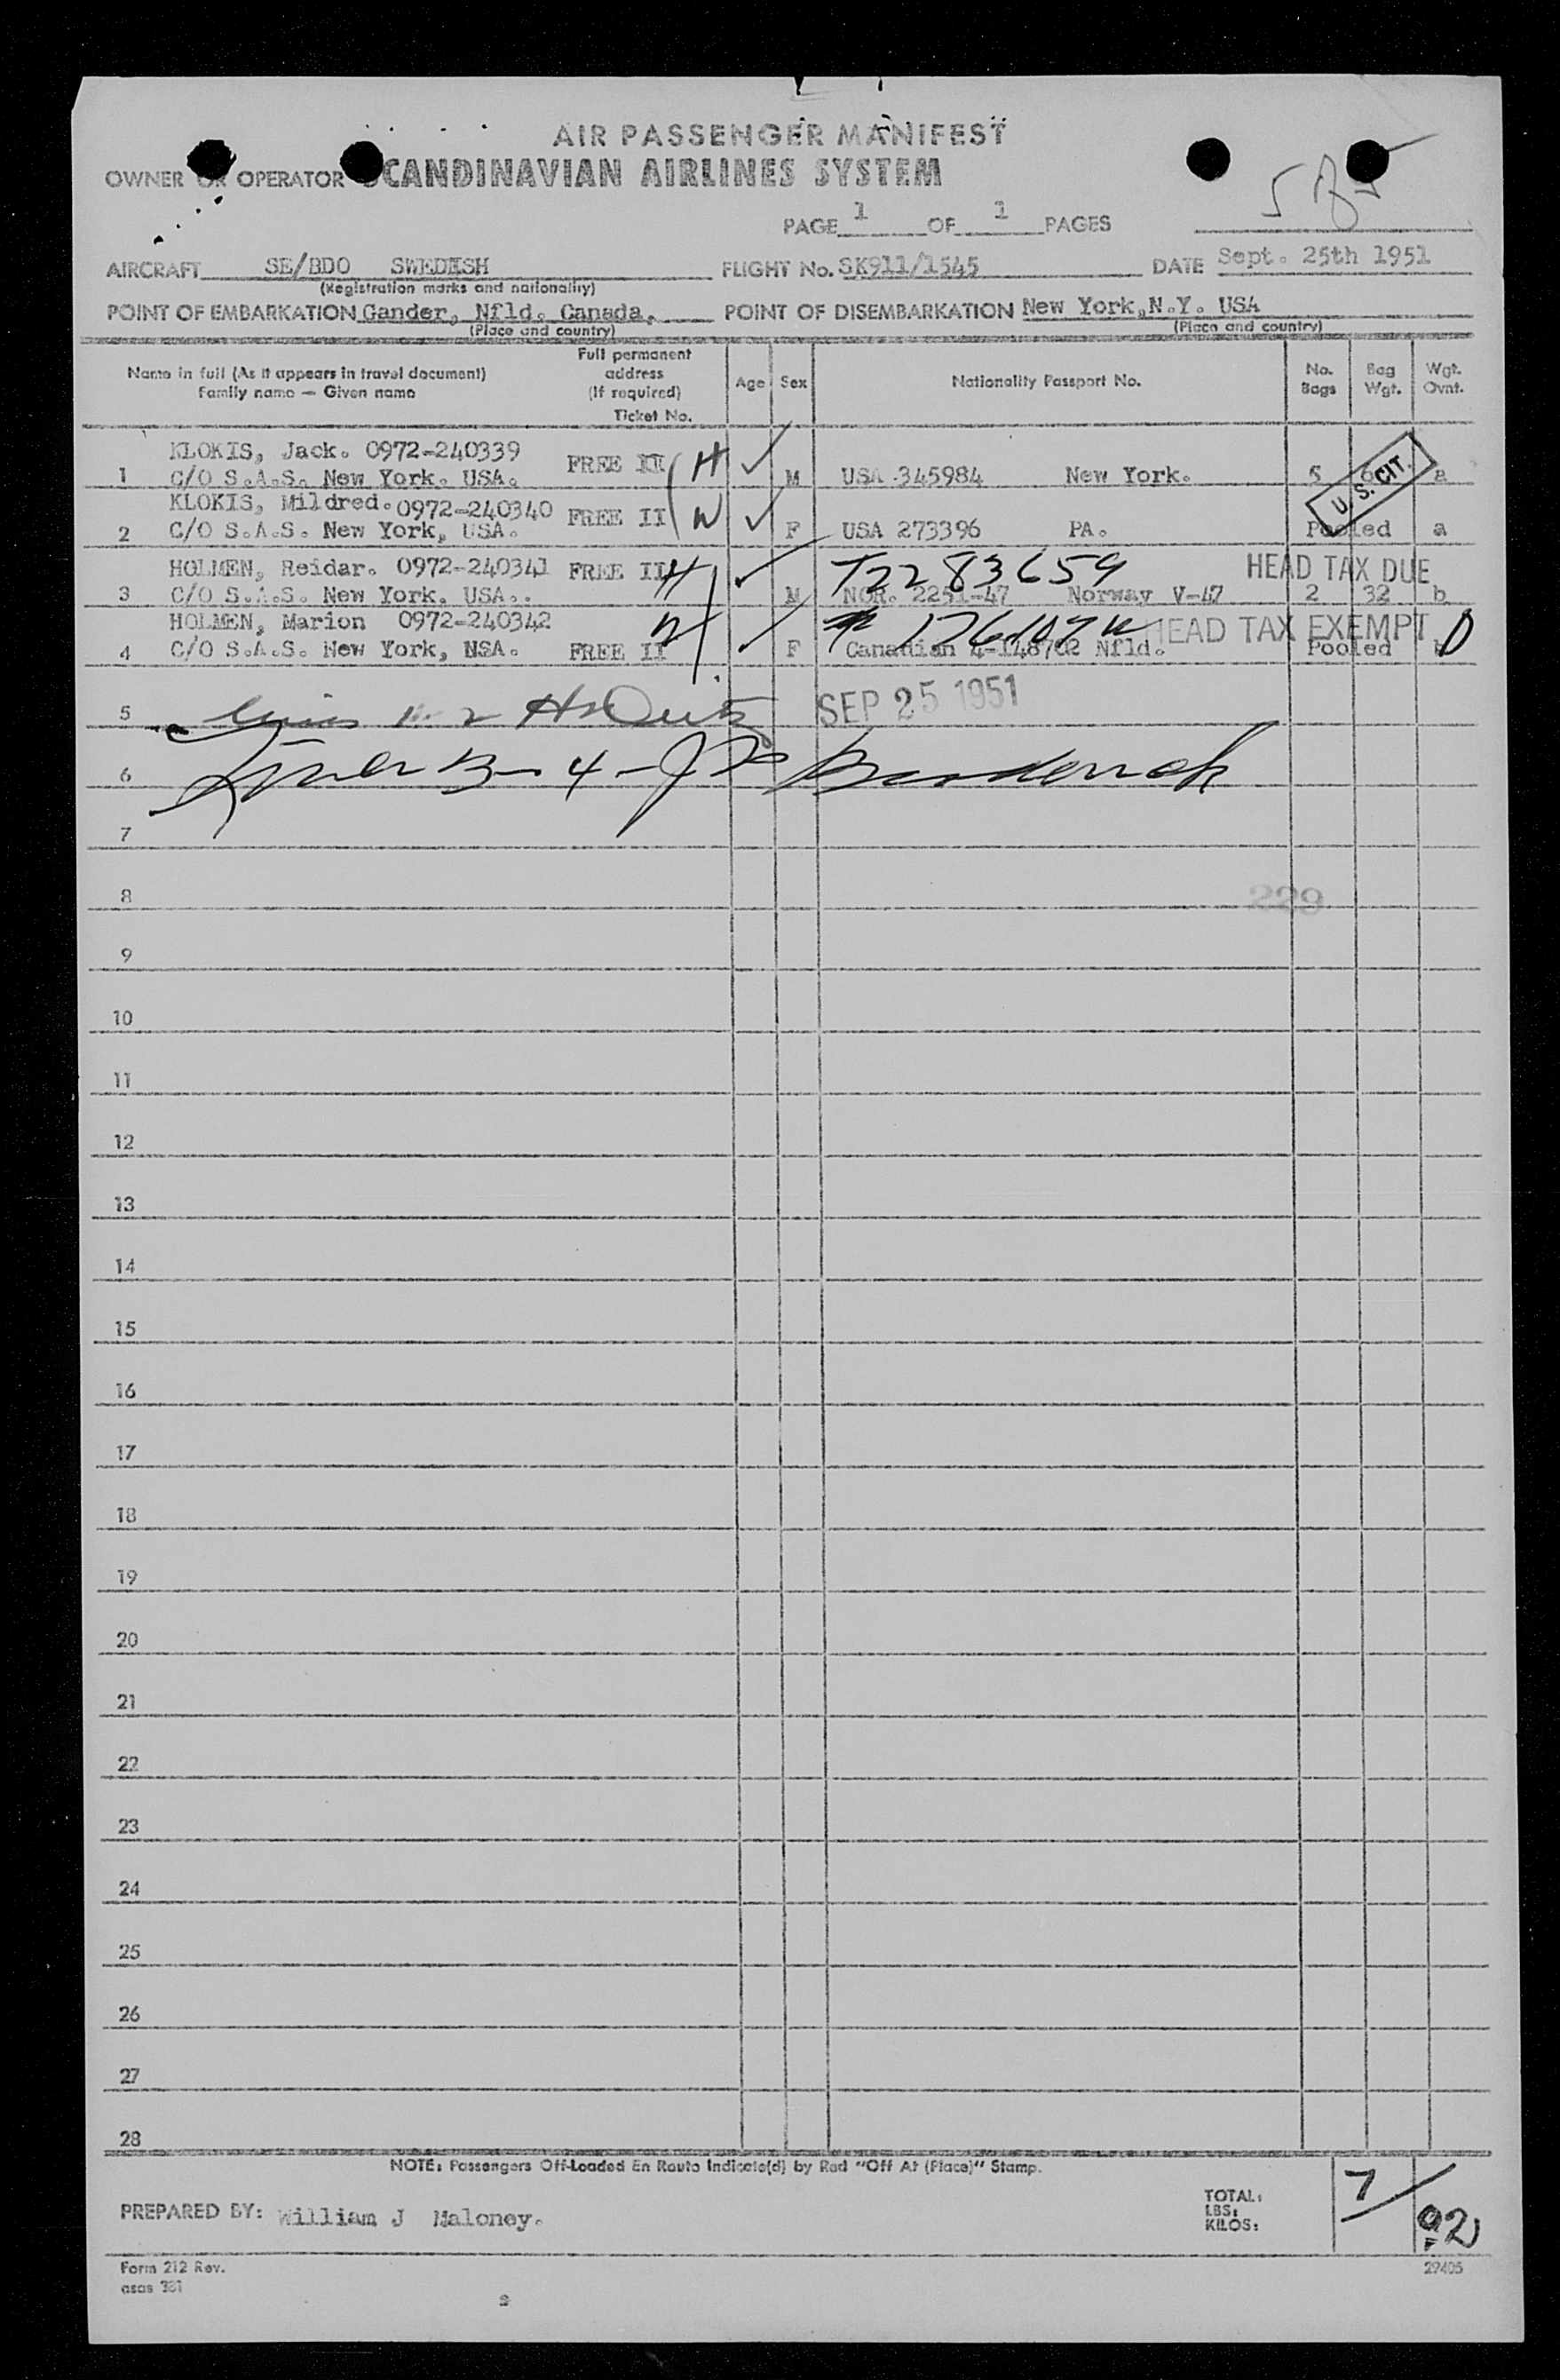 AIR PASSENGER MANIFEST
OWNER OR OPERATOR SCANDINAVIAN AIRLINES SYSTEM
PAGE 1 OF 1 PAGES
AIRCRAFT SE/BDO SWEDISH FLIGHT No. SK911/1545 DATE Sept. 25th 1951
(Registration marks and nationality)
POINT OF EMBARKATION Gander, Nfld. Canada. POINT OF DISEMBARKATION New York,N.Y. USA
(Place and country) (Place and country)
Name in full (As it appears in travel document) Family name — Given name Full permanent address (If required) Ticket No. Age Sex Nationality Passport No. No. Bags Bag Wgt. Wgt. Ovnt.
KLOKIS, Jack. 0972-240339 FREE II H
1 C/O S.A.S. New York. USA. M USA 345984 New York. 5 a
U. S. CIT.
KLOKIS, Mildred. 0972-240340 FREE II W
2 C/O S.A.S. New York, USA. F USA 273396 PA. Pooled a
HOLMEN, Reidar. 0972-240341 FREE II H T2283659 HEAD TAX DUE
3 C/O S.A.S. New York. USA.. M NOR. 2251-47 Norway V-47 2 32 b
HOLMEN, Marion 0972-240342 W HEAD TAX EXEMPT
4 C/O S.A.S. New York, NSA. FREE II F Canadian 4-148702 Nfld. Pooled b
5 SEP 25 1951
6
7
8 229
9
10
11
12
13
14
15
16
17
18
19
20
21
22
23
24
25
26
27
28
NOTE: Passengers Off-Loaded En Route Indicate(d) by Red "Off At (Place)" Stamp.
PREPARED BY: William J Maloney. TOTAL: LBS: KILOS: 7/92
Form 212 Rev. 29405
asas 381